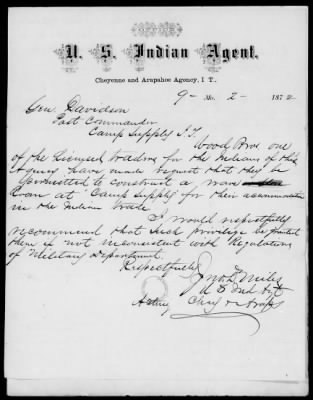 OFFICE
U. S. Indian Agent.
Cheyenne and Arapahoe Agency, I. T.
9- Mo. 2- 1872
Gen. Davidson
Post Commander
Camp Supply I.T.
Wood Bros one
of the Licensed traders for the Indians of this
Agency have made request that they be
permitted to construct a ware
room at Camp Supply for their accommodation
in the Indian trade.
I would respectfully
recommend that such privilege be granted
them if not inconsistent with Regulations
of Military Department.
Respectfully
Jno. D. Miles
U S Ind Agt
Chey & Arap